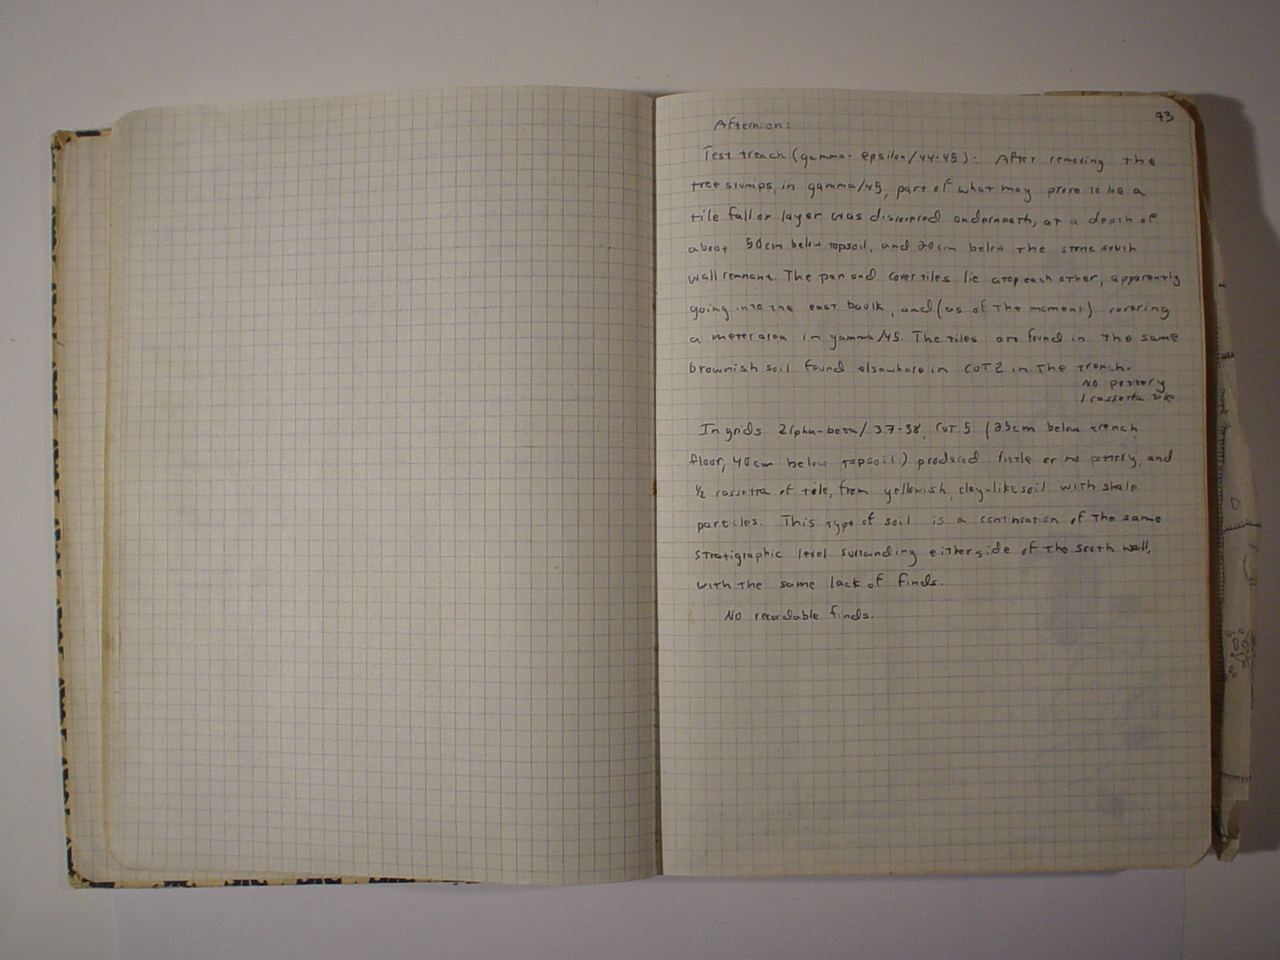 93
Afternoon:
Test trench (gamma-epsilon/44-45): After removing the
tree stumps in gamma/45, part of what may prove to be a
tile fall or layer was discovered underneath, at a depth of
about 50cm below topsoil, and 20cm below the stone south
wall remnant. The pan and cover tiles lie atop each other, apparently
going into the east baulk, and (as of the moment) covering
a meter area in gamma/45. The tiles are found in the same
brownish soil found elsewhere in CUT 2 in the trench.
No pottery
1 cassetta tile
In grids alpha-beta/37-38, CUT 5 (25cm below trench
floor, 40cm below topsoil) produced little or no pottery, and
½ cassetta of tile, from yellowish, clay-like soil with shale
particles. This type of soil is a continuation of the same
stratigraphic level surrounding either side of the south wall,
with the same lack of finds.
No recordable finds.